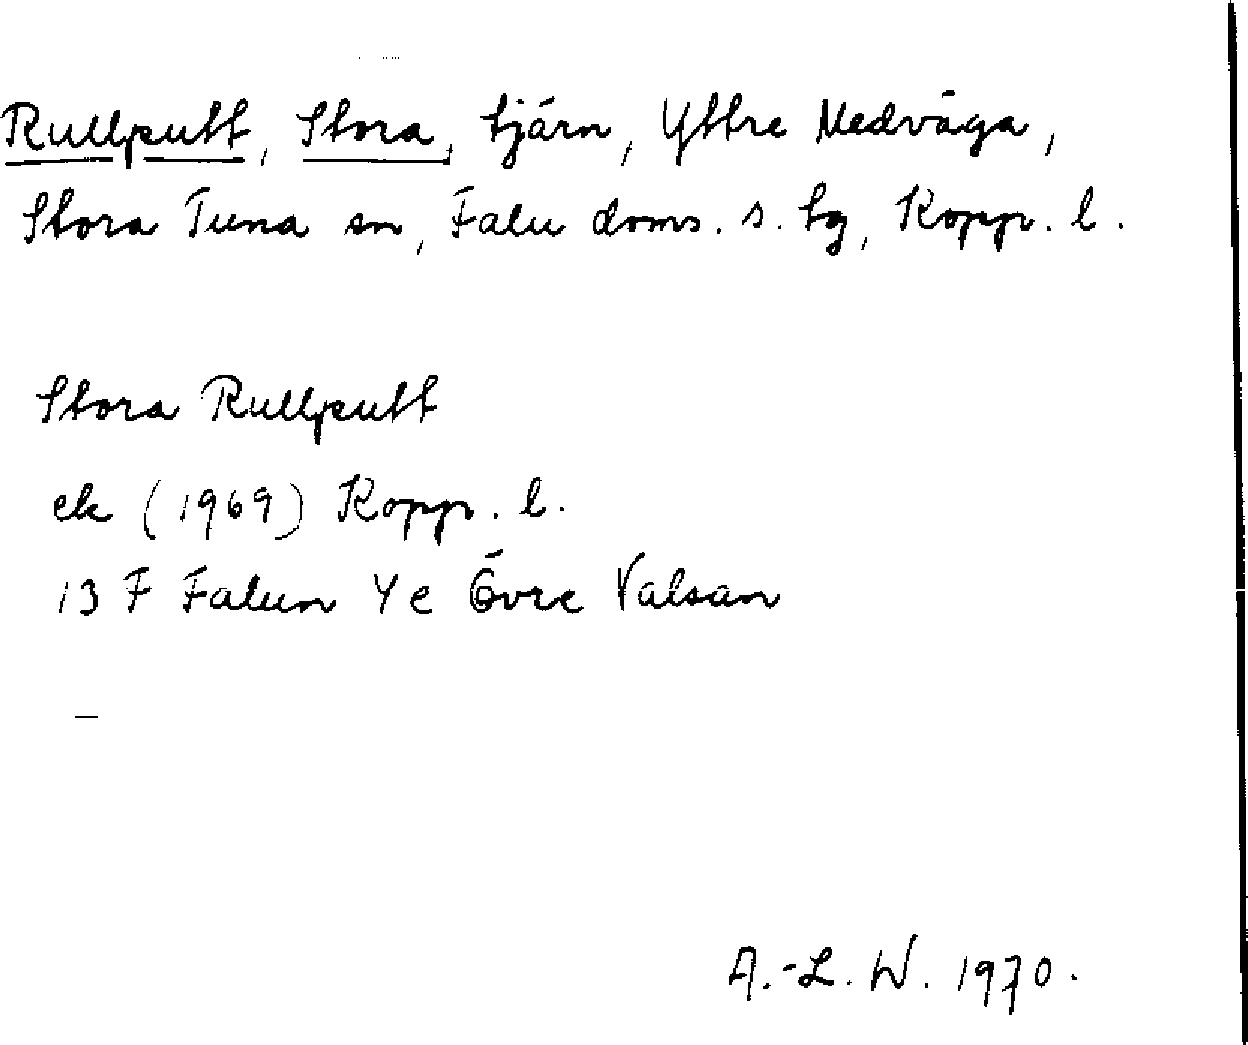 Rullputt, Stora, tjärn, Yttre Medväga,
Stora Tuna sn, Falu doms. s. tg, Kopp. l.
Stora Rullputt
ek (1969) Kopp. l.
13 F Falun Y e Övre Valsan
—
A.-L. W. 1970.